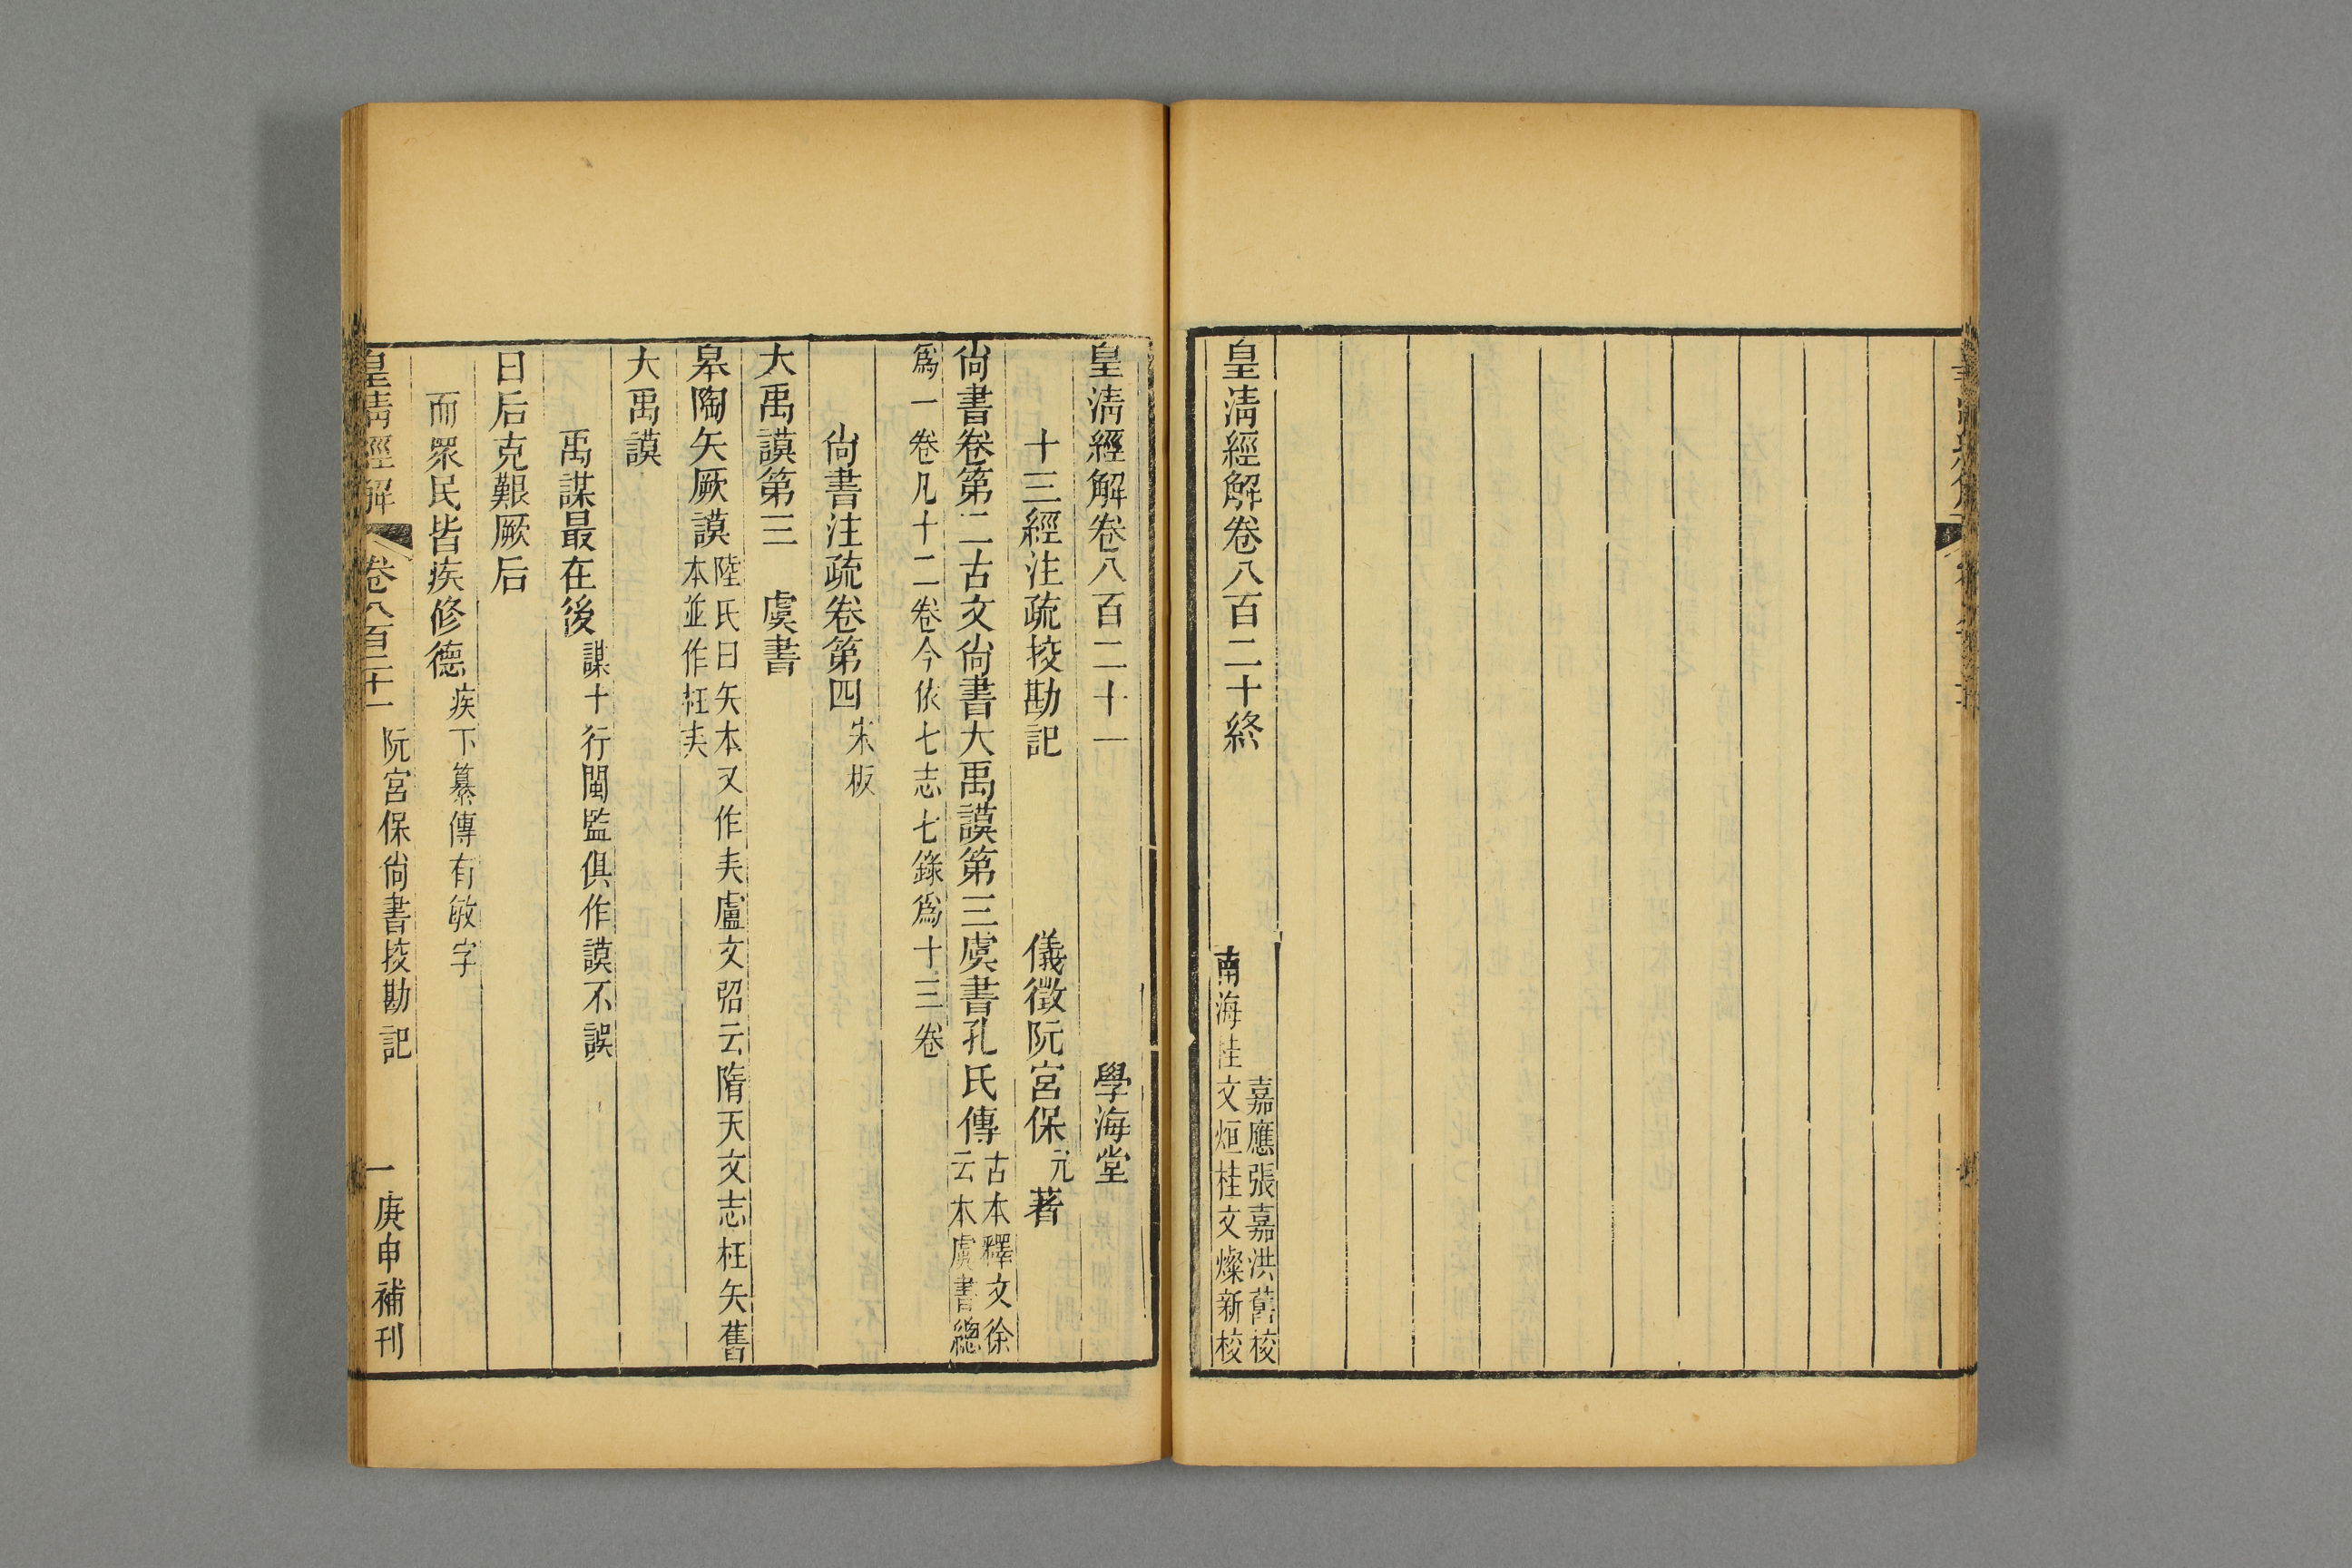 皇清經解卷八百二十終
嘉應張嘉洪舊校
南海桂文烜桂文燦新校
皇清經解卷八百二十一 學海堂
十三經注疏挍勘記 儀徵阮宮保元著
尚書卷第二古文尚書大禹謨第三虞書孔氏傳古本釋文徐
云本虞書總
爲一卷凡十二卷今依七志七錄爲十三卷
尚書注疏卷第四宋板
大禹謨第三 虞書
皋陶矢厥謨陸氏曰矢本又作夫盧文弨云隋天文志枉矢舊
本並作枉夫
大禹謨
禹謀最在後謀十行閩監俱作謨不誤
曰后克艱厥后
而眾民皆疾修德疾下纂傳有敏字
皇清經解 卷八百二十一 阮宮保尚書挍勘記 一 庚申補刊